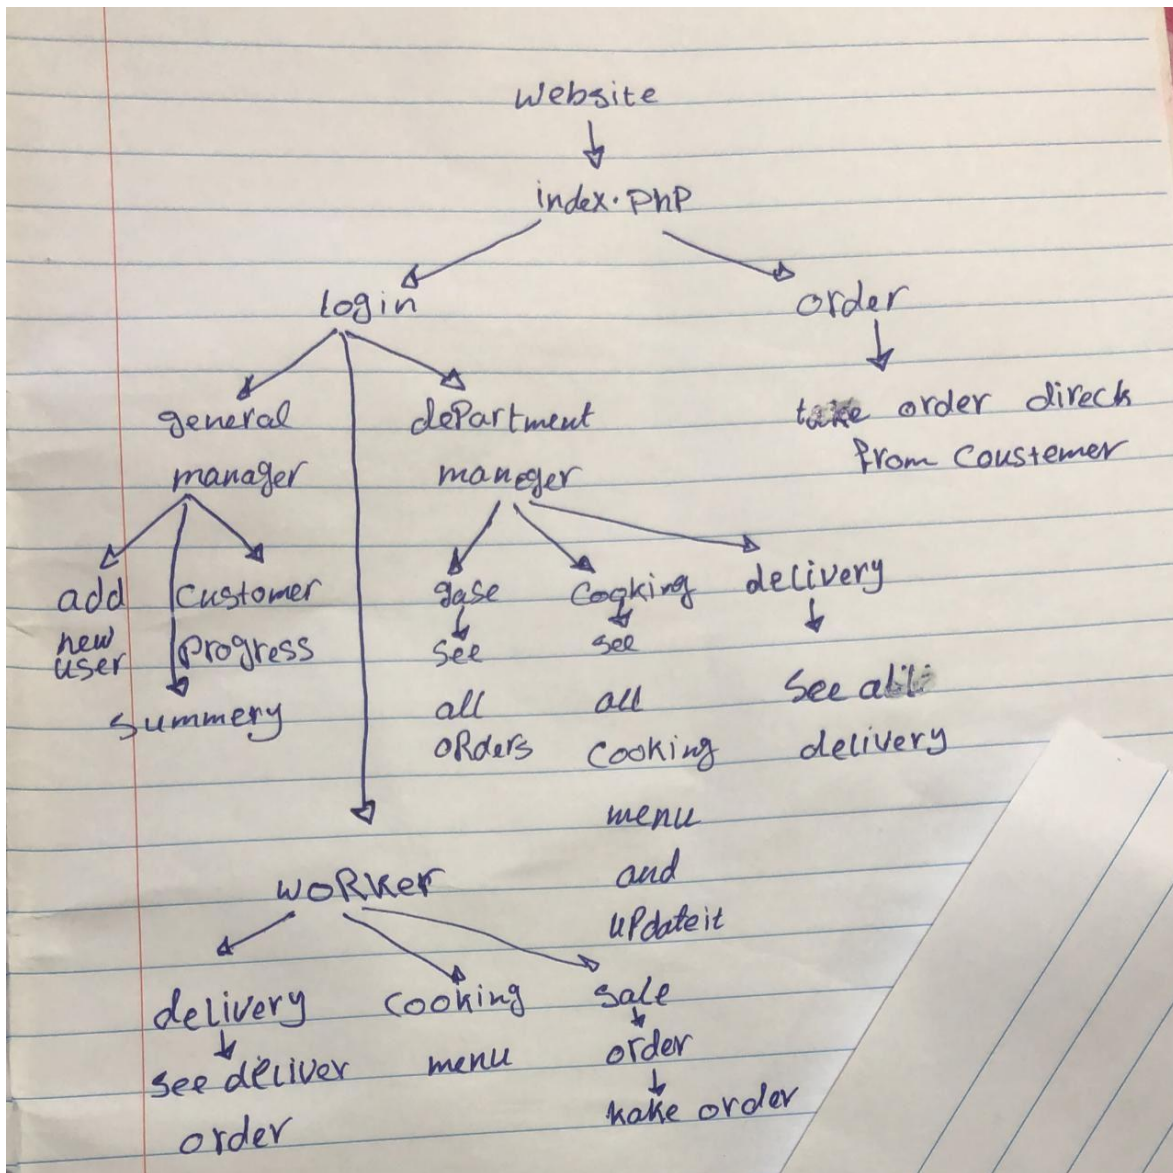 website
index.php
login
order
general
manager
department
maneger
take order direck
from coustemer
add
new
user
customer
progress
summery
gase
see
all
orders
cooking
see
all
cooking
menu
and
update it
delivery
see all
delivery
worker
delivery
see deliver
order
cooking
menu
sale
order
kake order